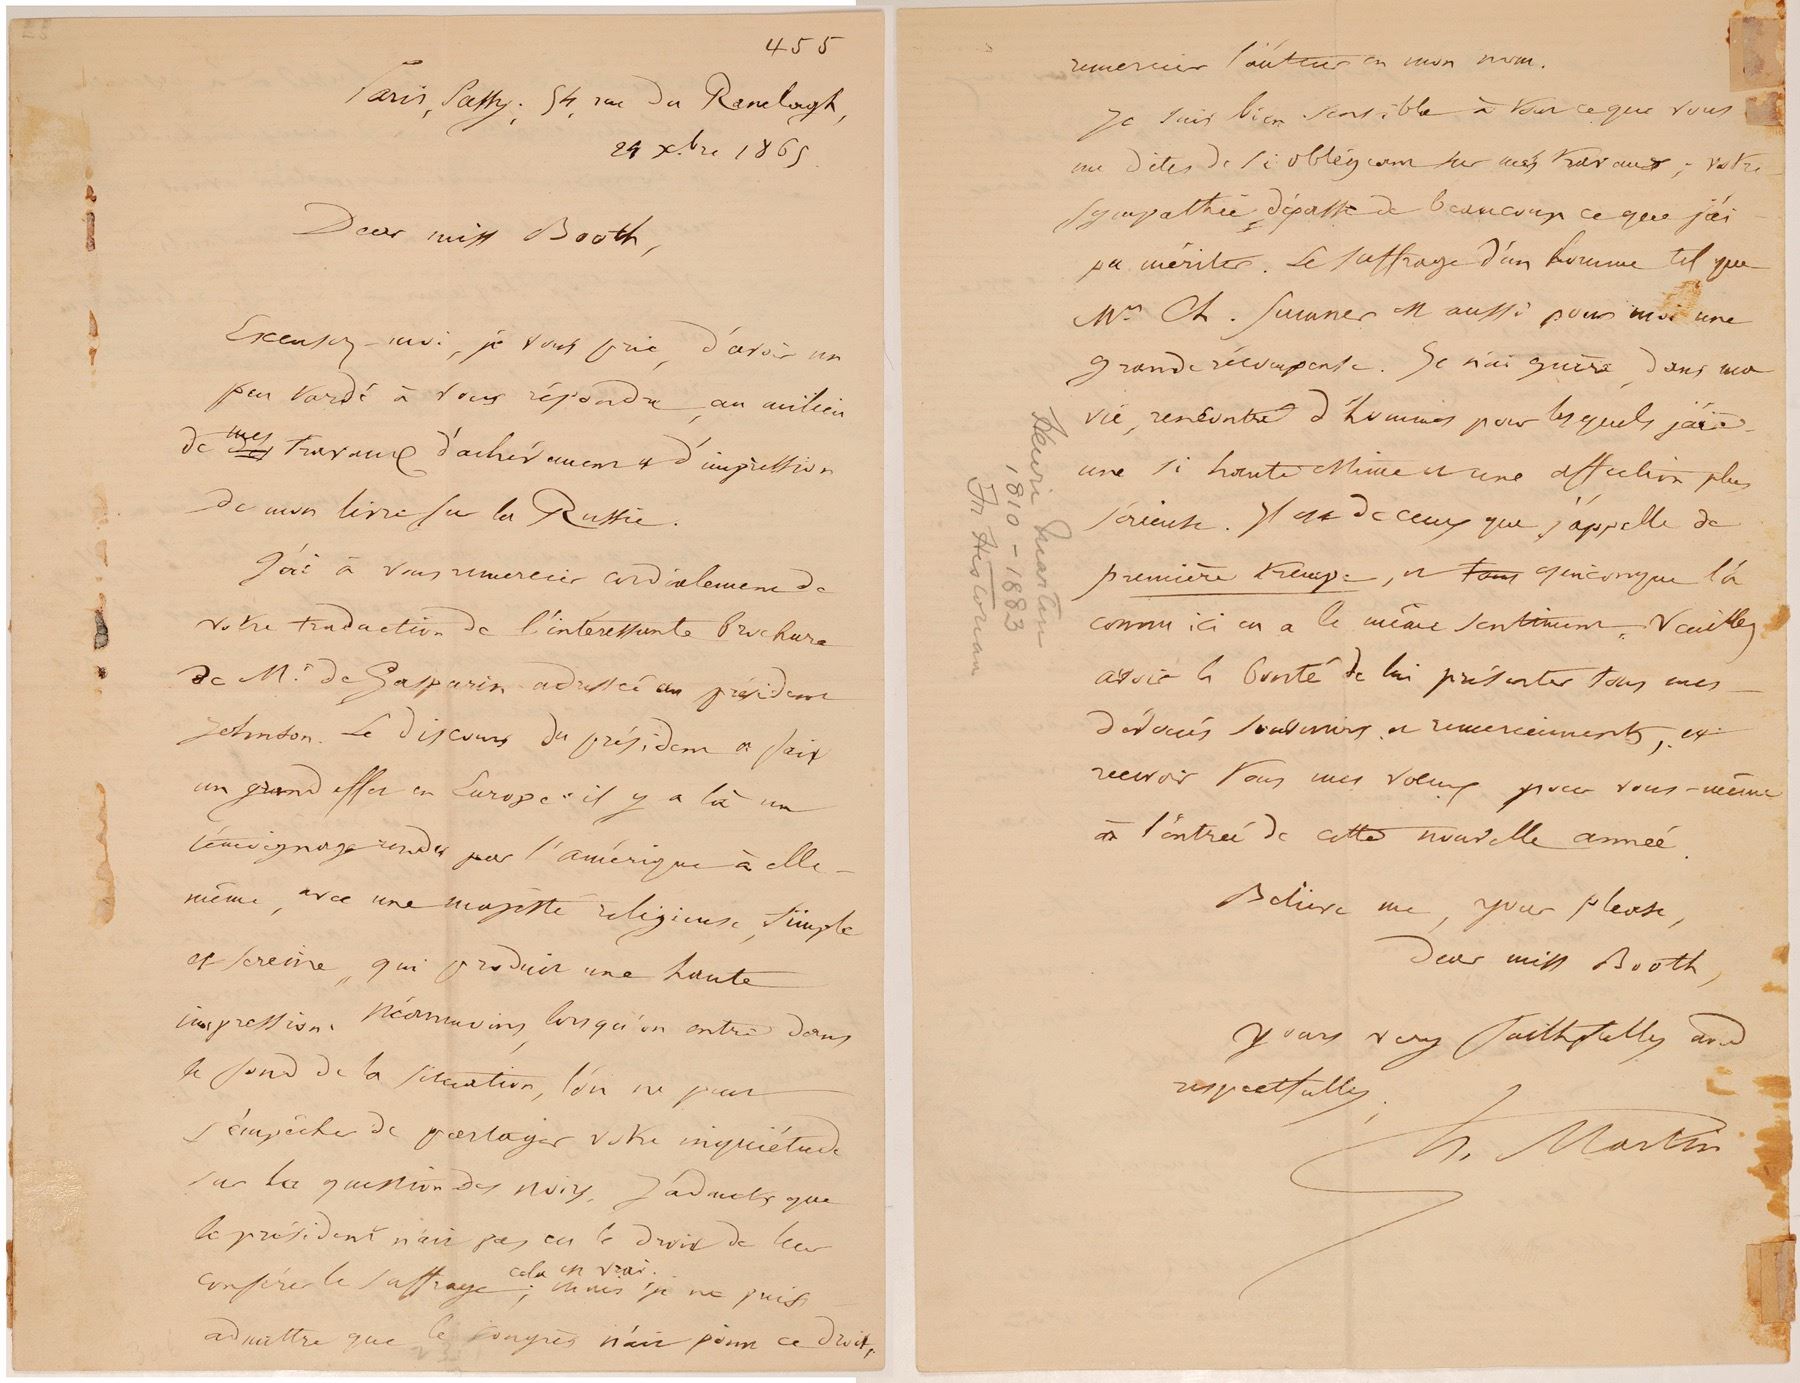 455
Paris, Passy. 54, rue du Ranelagh,
29 xbre 1865.
Dear miss Booth,
Excusez-moi, je vous prie, d'avoir un
peu tardé à vous répondre, au milieu
de mes travaux d'achèvement et d'impression
de mon livre sur la Russie.
J'ai à vous remercier cordialement de
votre traduction de l'intéressante brochure
de Mr. de Gasparin adressée au président
Johnson. Le discours du président a fait
un grand effet en Europe : il y a là un
témoignage rendu par l'amérique à elle-
même, avec une majesté religieuse, simple
et sereine, qui produit une haute
impression. Néanmoins, lorsqu'on entre dans
le fond de la situation, l'on ne peut
s'empêcher de partager votre inquiétude
sur la question des noirs. J'admets que
le président n'ait pas eu le droit de leur
cela est vrai.
conférer le suffrage ; mais je ne puis
admettre que le congrès n'ait point ce droit.
remercier l'auteur en mon nom.
Je suis bien sensible à tout ce que vous
me dites de si obligeant sur mes travaux ; votre
sympathie dépasse de beaucoup ce que j'ai
pu mériter. Le suffrage d'un homme tel que
Mr. Ch. Sumner est aussi pour moi une
grande récompense. Je n'ai guère, dans ma
vie, rencontré d'hommes pour lesquels j'aie
une si haute estime et une affection plus
sérieuse. Il est de ceux que j'appelle de
première trempe, et tous quiconque l'a
connu ici en a le même sentiment. Veuillez
avoir la bonté de lui présenter tous mes
dévoués souvenirs et remerciements, et
recevoir tous mes voeux pour vous-même
à l'entrée de cette nouvelle année.
Believe me, your please,
Dear miss Booth,
yours very faithfully and
respectfully,
h. Martin
Henri Martin
1810-1883
Fr Historian